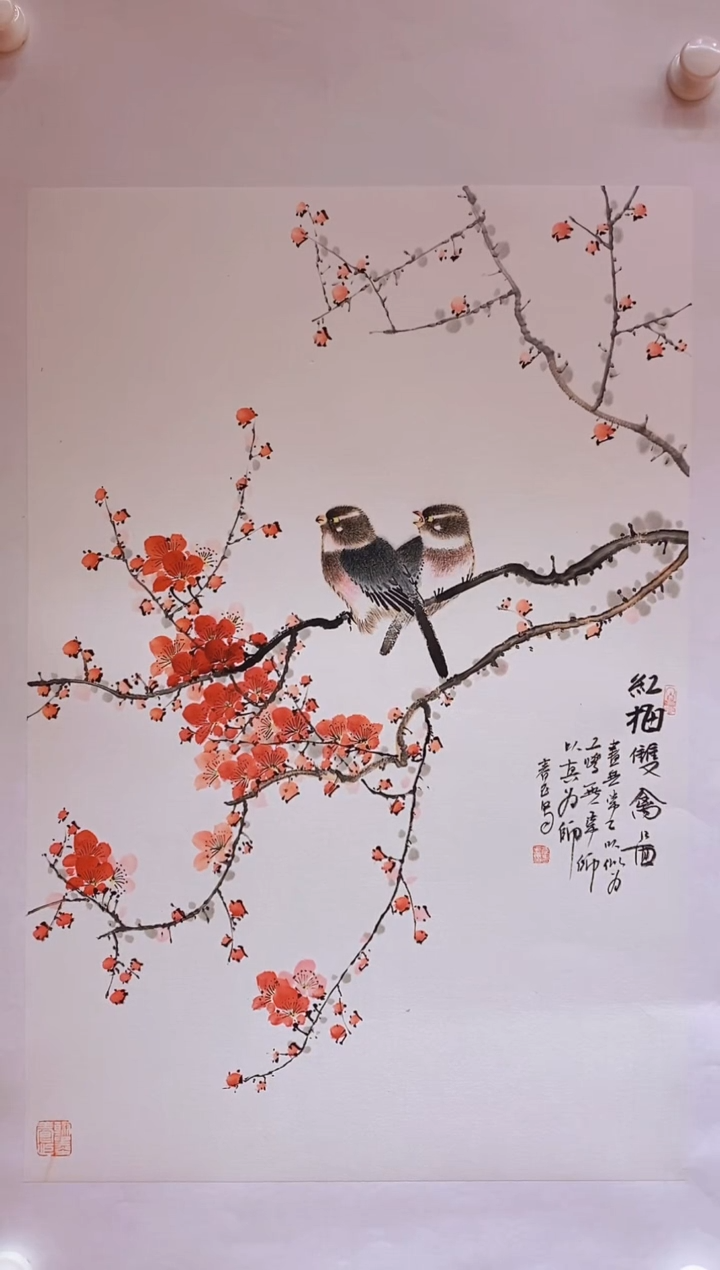 紅梅雙禽啚
畫無常工以似為
工學無常師
以真為師